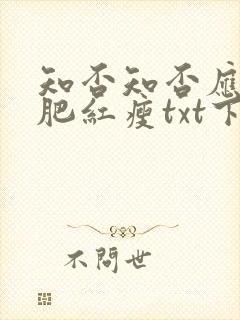 知否知否應
肥紅瘦txt下
不問世